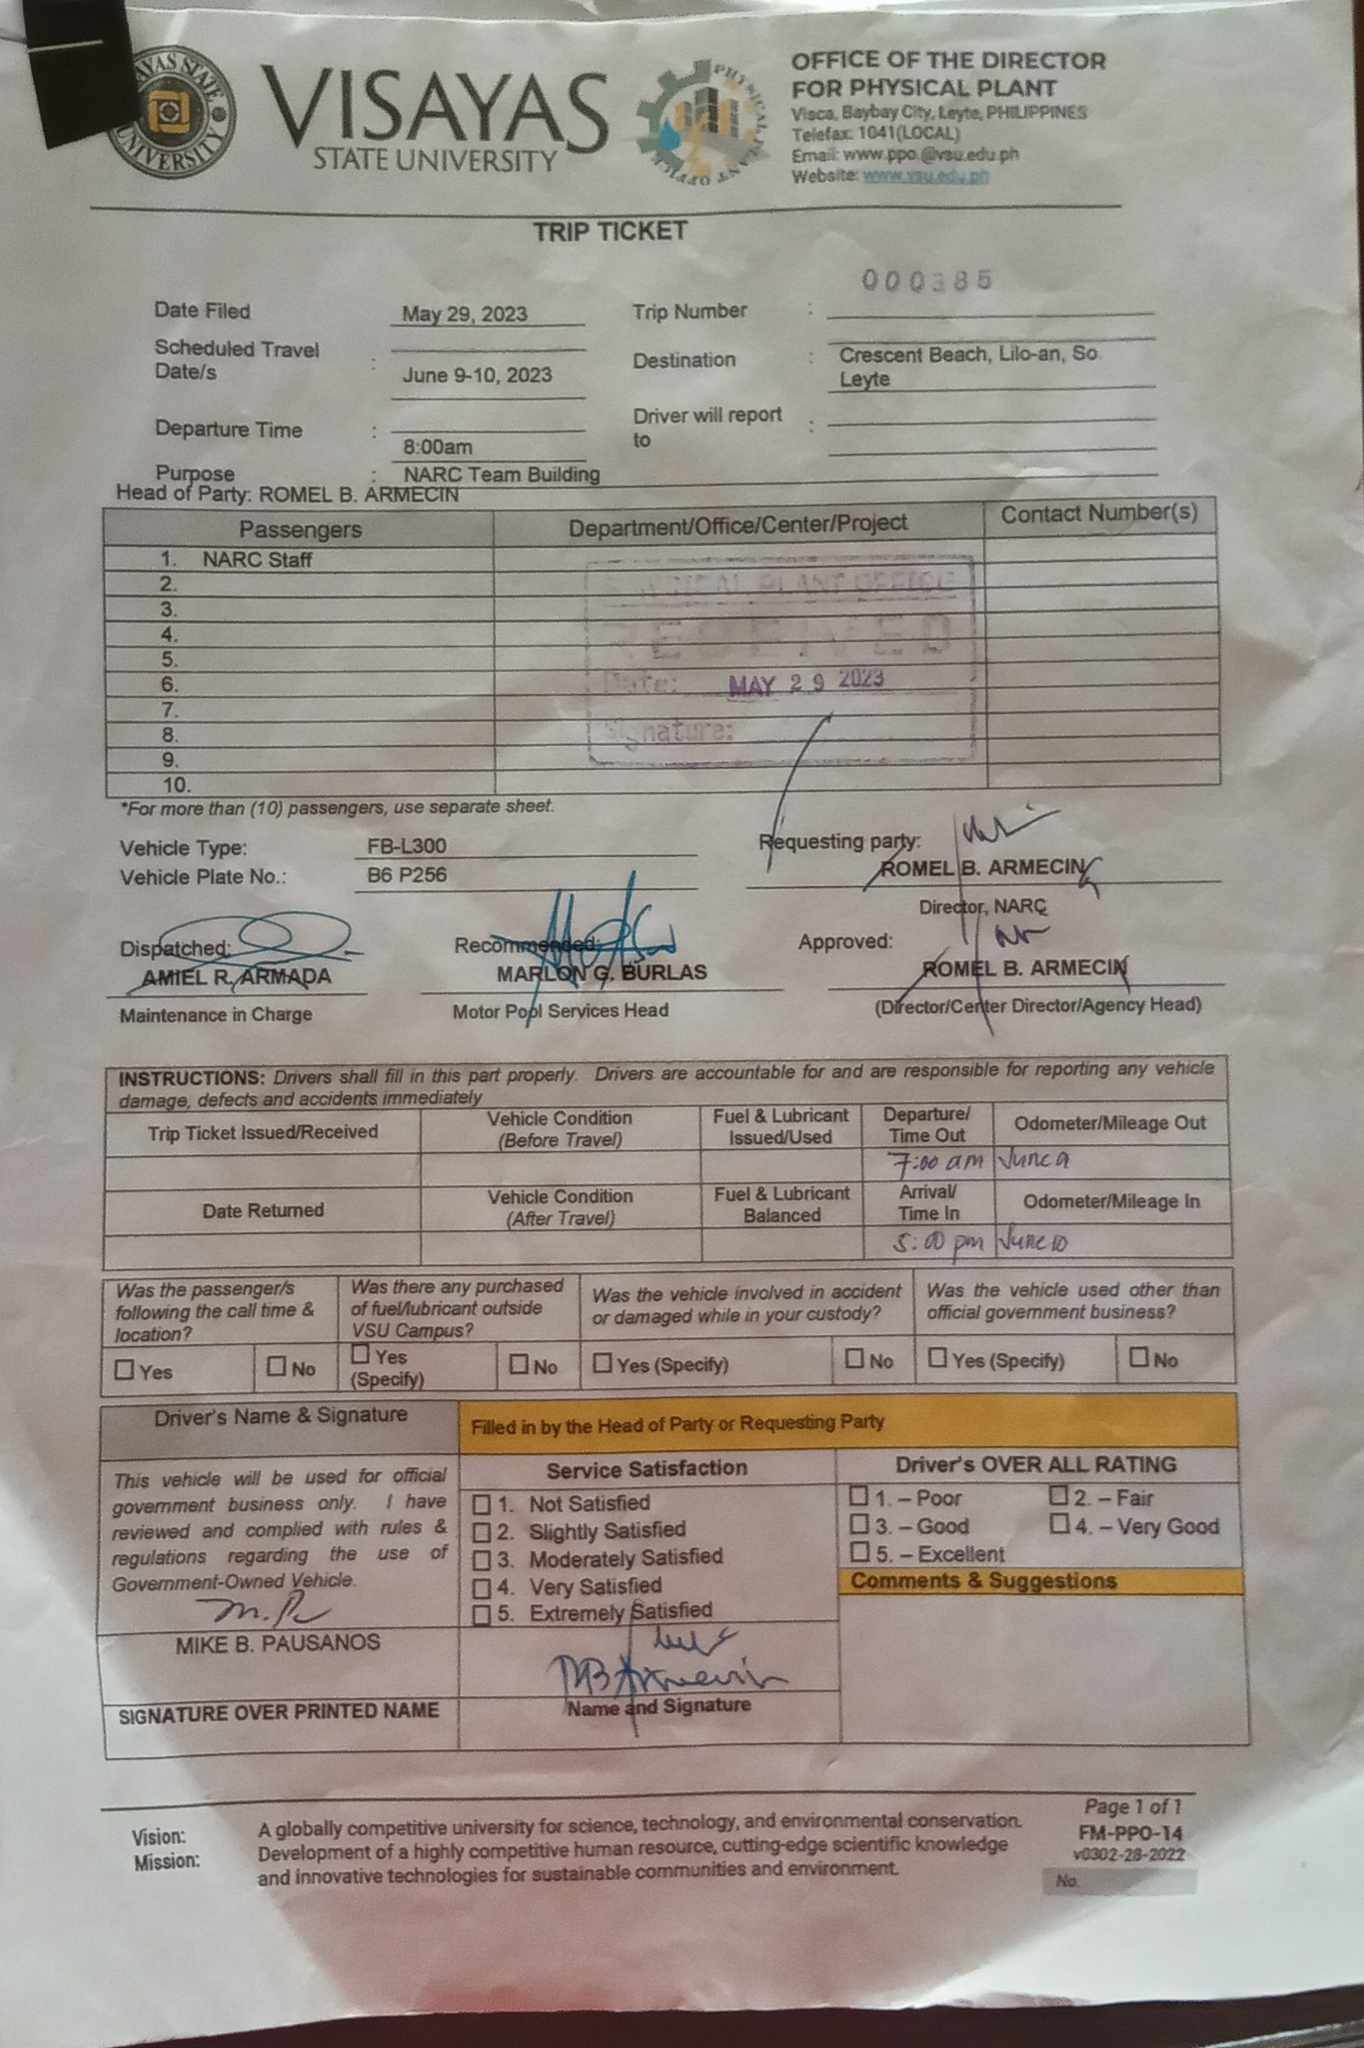 VISAYAS
STATE UNIVERSITY
OFFICE OF THE DIRECTOR
FOR PHYSICAL PLANT
Visca, Baybay City, Leyte, PHILIPPINES
Telefax: 1041(LOCAL)
Email: www.ppo.@vsu.edu.ph
Website: www.vsu.edu.ph
TRIP TICKET
000385
Date Filed May 29, 2023 Trip Number :
Scheduled Travel Date/s : June 9-10, 2023 Destination : Crescent Beach, Lilo-an, So. Leyte
Departure Time : 8:00am Driver will report to :
Purpose : NARC Team Building
Head of Party: ROMEL B. ARMECIN
Passengers Department/Office/Center/Project Contact Number(s)
1. NARC Staff
2.
3.
4.
5.
6.
7.
8.
9.
10.
PLANT OFFICE
RECEIVED
Date: MAY 29 2023
Signature:
*For more than (10) passengers, use separate sheet.
Vehicle Type: FB-L300 Requesting party:
Vehicle Plate No.: B6 P256 ROMEL B. ARMECIN
Director, NARC
Dispatched: Recommended: Approved:
AMIEL R. ARMADA MARLON G. BURLAS ROMEL B. ARMECIN
Maintenance in Charge Motor Pool Services Head (Director/Center Director/Agency Head)
INSTRUCTIONS: Drivers shall fill in this part properly. Drivers are accountable for and are responsible for reporting any vehicle
damage, defects and accidents immediately
Trip Ticket Issued/Received Vehicle Condition (Before Travel) Fuel & Lubricant Issued/Used Departure/ Time Out Odometer/Mileage Out
7:00 am June 9
Date Returned Vehicle Condition (After Travel) Fuel & Lubricant Balanced Arrival/ Time In Odometer/Mileage In
5:00 pm June 10
Was the passenger/s following the call time & location? Was there any purchased of fuel/lubricant outside VSU Campus? Was the vehicle involved in accident or damaged while in your custody? Was the vehicle used other than official government business?
Yes No Yes (Specify) No Yes (Specify) No Yes (Specify) No
Driver's Name & Signature Filled in by the Head of Party or Requesting Party
This vehicle will be used for official
government business only. I have
reviewed and complied with rules &
regulations regarding the use of
Government-Owned Vehicle.
MIKE B. PAUSANOS
SIGNATURE OVER PRINTED NAME
Service Satisfaction
1. Not Satisfied
2. Slightly Satisfied
3. Moderately Satisfied
4. Very Satisfied
5. Extremely Satisfied
RB Armecin
Name and Signature
Driver's OVER ALL RATING
1. – Poor 2. – Fair
3. – Good 4. – Very Good
5. – Excellent
Comments & Suggestions
Vision: A globally competitive university for science, technology, and environmental conservation.
Mission: Development of a highly competitive human resource, cutting-edge scientific knowledge
and innovative technologies for sustainable communities and environment.
Page 1 of 1
FM-PPO-14
v0302-28-2022
No.